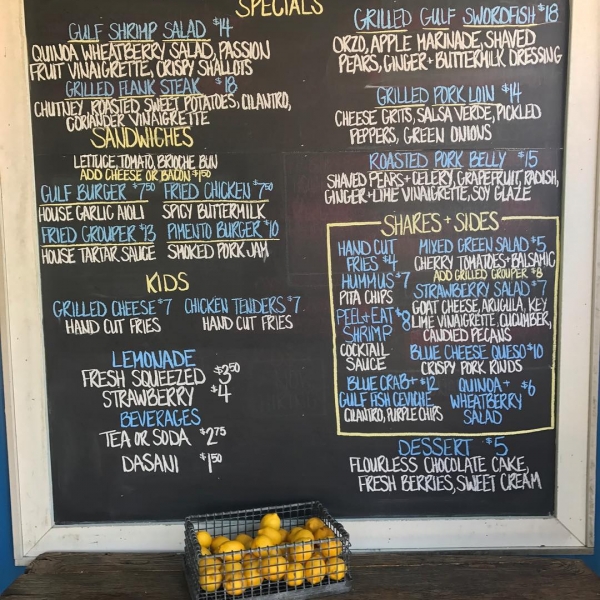 SPECIALS
GULF SHRIMP SALAD $14
QUINOA WHEATBERRY SALAD, PASSION
FRUIT VINAIGRETTE, CRISPY SHALLOTS
GRILLED FLANK STEAK $18
CHUTNEY, ROASTED SWEET POTATOES, CILANTRO,
CORIANDER VINAIGRETTE
SANDWICHES
LETTUCE, TOMATO, BRIOCHE BUN
ADD CHEESE OR BACON $1.50
GULF BURGER $7.50 FRIED CHICKEN $7.50
HOUSE GARLIC AIOLI SPICY BUTTERMILK
FRIED GROUPER $13 PIMENTO BURGER $10
HOUSE TARTAR SAUCE SMOKED PORK JAM
KIDS
GRILLED CHEESE $7 CHICKEN TENDERS $7
HAND CUT FRIES HAND CUT FRIES
LEMONADE
FRESH SQUEEZED $3.50
STRAWBERRY $4
BEVERAGES
TEA OR SODA $2.75
DASANI $1.50
GRILLED GULF SWORDFISH $18
ORZO, APPLE MARINADE, SHAVED
PEARS, GINGER + BUTTERMILK DRESSING
GRILLED PORK LOIN $14
CHEESE GRITS, SALSA VERDE, PICKLED
PEPPERS, GREEN ONIONS
ROASTED PORK BELLY $15
SHAVED PEARS + CELERY, GRAPEFRUIT, RADISH,
GINGER + LIME VINAIGRETTE, SOY GLAZE
SHARES + SIDES
HAND CUT
FRIES $4
HUMMUS $7
PITA CHIPS
PEEL + EAT $8
SHRIMP
COCKTAIL
SAUCE
BLUE CRAB + $12
GULF FISH CEVICHE
CILANTRO, PURPLE CHIPS
MIXED GREEN SALAD $5
CHERRY TOMATOES + BALSAMIC
ADD GRILLED GROUPER $8
STRAWBERRY SALAD $7
GOAT CHEESE, ARUGULA, KEY
LIME VINAIGRETTE, CUCUMBER,
CANDIED PECANS
BLUE CHEESE QUESO $10
CRISPY PORK RINDS
QUINOA + $6
WHEATBERRY
SALAD
DESSERT $5
FLOURLESS CHOCOLATE CAKE,
FRESH BERRIES, SWEET CREAM